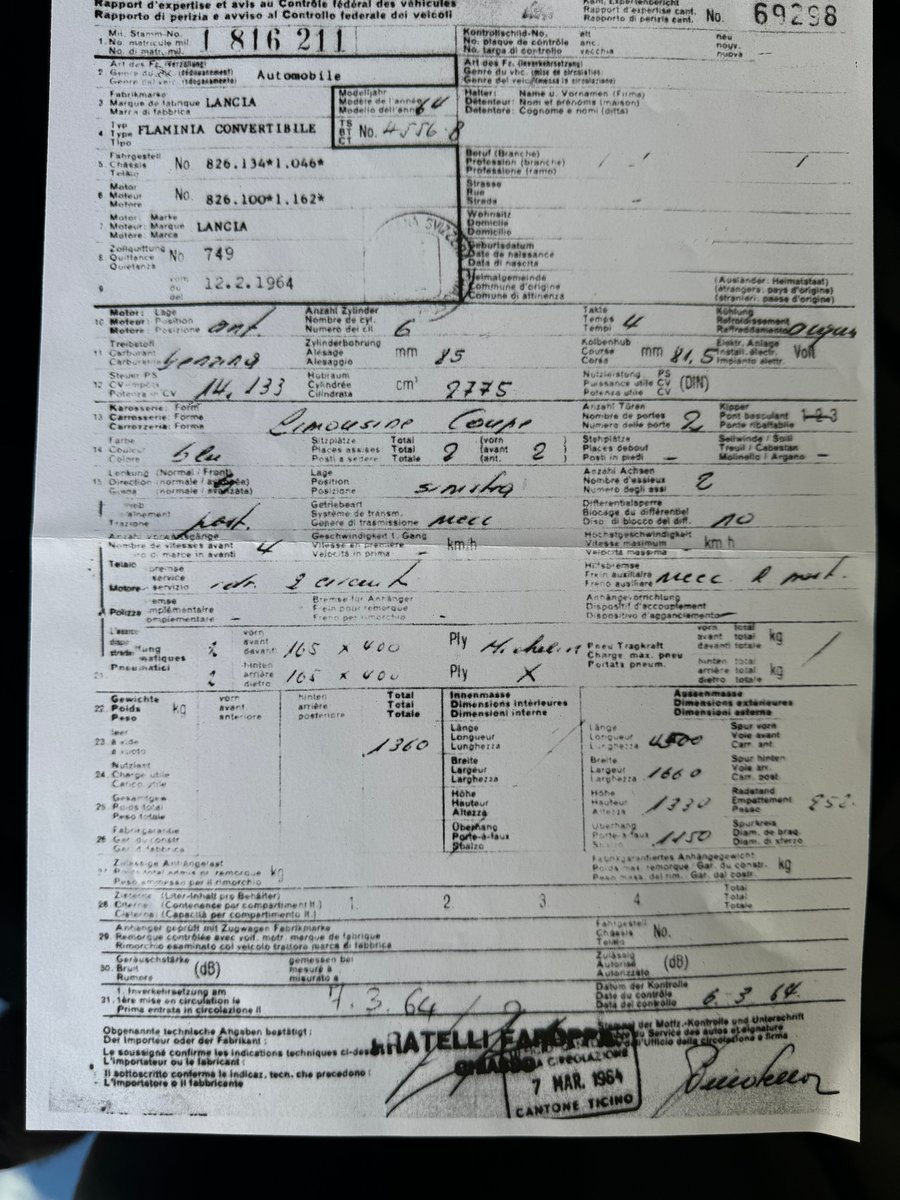 Rapport d'expertise et avis au Contrôle fédéral des véhicules
Rapporto di perizia e avviso al Controllo federale dei veicoli
Kant. Expertenbericht
Rapport d'expertise cant.
Rapporto di perizia cant.
No. 69298
Mil. Stamm-No.
1. No. matricule mil.
No. di matr. mil.
1 816 211
Kontrollschild-No. alt neu
No. plaque de contrôle anc. nouv.
No. targa di controllo vecchia nuova
Art des Fz. (Verzollung)
2 Genre du vhc. (dédouanement)
Genere del veic. (sdoganamento)
Automobile
Art des Fz. (Inverkehrsetzung)
Genre du vhc. (mise en circulation)
Genere del veic. (messa in circolazione)
Fabrikmarke
3 Marque de fabrique
Marca di fabbrica
LANCIA
Modelljahr
Modèle de l'année
Modello dell'anno
64
Halter: Name u. Vornamen (Firma)
Détenteur: Nom et prénoms (maison)
Detentore: Cognome e nomi (ditta)
Typ
4 Type
Tipo
FLAMINIA CONVERTIBILE
TS
BT
CT
No. 4556 8
Fahrgestell
5. Châssis
Telaio
No 826.134*1.046*
Beruf (Branche)
Profession (branche)
Professione (ramo)
Motor
6 Moteur
Motore
No. 826.100*1.162*
Strasse
Rue
Strada
Motor: Marke
7 Moteur: Marque
Motore: Marca
LANCIA
Wohnsitz
Domicile
Domicilio
Zollquittung
8 Quittance
Quietanza
No 749
Geburtsdatum
Date de naissance
Data di nascita
9
vom
du
del
12.2.1964
Heimatgemeinde
Commune d'origine
Comune di attinenza
(Ausländer: Heimatstaat)
(étrangers: pays d'origine)
(stranieri: paese d'origine)
Motor: Lage
10 Moteur: Position
Motore: Posizione
ant.
Anzahl Zylinder
Nombre de cyl.
Numero dei cil.
6
Takte
Temps
Tempi
4
Kühlung
Refroidissement
Raffreddamento
Treibstoff
11 Carburant
Carburante
benzina
Zylinderbohrung
Alésage
Alesaggio
mm 85
Kolbenhub
Course
Corsa
mm 81,5
Elektr. Anlage
Install. électr.
Impianto elettr.
Volt
Steuer PS
12 CV-impôts
Potenza in CV
14,133
Hubraum
Cylindrée
Cilindrata
cm³ 2775
Nutzleistung PS
Puissance utile CV
Potenza utile CV
(DIN)
Karosserie: Form
13 Carrosserie: Forme
Carrozzeria: Forma
Limousine Coupe
Anzahl Türen
Nombre de portes
Numero delle porte
2
Kipper
Pont basculant
Ponte ribaltabile
1-2-3
Farbe
14 Couleur
Colore
blu
Sitzplätze Total (vorn )
Places assises Total 2 (avant 2 )
Posti a sedere Totale (ant. )
Stehplätze
Places debout
Posti in piedi –
Seilwinde / Spill
Treuil / Cabestan
Molinello / Argano –
Lenkung (Normal / Front)
15 Direction (normale / avancée)
Guida (normale / avanzata)
Lage
Position
Posizione
sinistra
Anzahl Achsen
Nombre d'essieux
Numero degli assi
2
Trazione
post.
Getriebeart
Système de transm.
Genere di trasmissione
mecc
Differentialsperre
Blocage du différentiel
Disp. di blocco del diff.
no
Anzahl Vorwärtsgänge
Nombre de vitesses avant
marce in avanti
4
Geschwindigkeit 1. Gang
Vitesse en première
Velocità in prima
– km/h
Höchstgeschwindigkeit
Vitesse maximum
Velocità massima
– km/h
Telaio
Motore
service
servizio
idr. 2 circuit
Hilfsbremse
Frein auxiliaire
Freno ausiliare
mecc R post.
Polizza
Bremse für Anhänger
Frein pour remorque
Freno per rimorchio –
Anhängevorrichtung
Dispositif d'accouplement
Dispositivo d'agganciamento –
Pneumatici
2
vorn
avant
davanti
165 x 400
Ply Michelin
Pneu Tragkraft
Charge max. pneu
Portata pneum.
vorn total
avant total
davanti totale
kg
2
hinten
arrière
dietro
165 x 400
Ply X
hinten total
arrière total
dietro totale
kg
Gewichte
22. Poids
Peso
kg
vorn
avant
anteriore
hinten
arrière
posteriore
Total
Total
Totale
Innenmasse
Dimensions intérieures
Dimensioni interne
Aussenmasse
Dimensions extérieures
Dimensioni esterne
leer
23. à vide
a vuoto
1360
Länge
Longueur
Lunghezza
Länge
Longueur
Lunghezza
4500
Spur vorn
Voie avant
Carr. ant.
Nutzlast
24. Charge utile
Carico utile
Breite
Largeur
Larghezza
Breite
Largeur
Larghezza
1660
Spur hinten
Voie arr.
Carr. post.
Gesamtgew.
25. Poids total
Peso totale
Höhe
Hauteur
Altezza
Höhe
Hauteur
Altezza
1330
Radstand
Empattement
Passo
252.
Fabrikgarantie
26 Gar. du constr.
Gar. d. fabbrica
Überhang
Porte-à-faux
Sbalzo
Überhang
Porte-à-faux
Sbalzo
1150
Spurkreis
Diam. de braq.
Diam. di sterzo
Zulässige Anhängelast
27. Poids total admis par remorque
Peso ammesso per il rimorchio
kg
Fabrikgarantiertes Anhängegewicht
Poids max. remorque: Gar. du constr.
Peso mass. del rim. Gar. dal costr.
kg
Zisterne: (Liter-Inhalt pro Behälter)
28. Citerne: (Contenance par compartiment lt.)
Cisterna: (Capacità per compartimento lt.)
1. 2. 3. 4.
Total
Total
Totale
Anhänger geprüft mit Zugwagen Fabrikmarke
29. Remorque contrôlée avec voit. motr. marque de fabrique
Rimorchio esaminato col veicolo trattore marca di fabbrica
Fahrgestell
Châssis
Telaio
No.
Geräuschstärke
30. Bruit
Rumore
(dB)
gemessen bei
mesuré à
misurato a
Zulässig
Autorisé
Autorizzato
(dB)
1. Inverkehrsetzung am
31. 1ère mise en circulation le
Prima entrata in circolazione il
7.3.64
Datum der Kontrolle
Date du contrôle
Data del controllo
6.3.64.
Obgenannte technische Angaben bestätigt:
Der Importeur oder der Fabrikant:
Le soussigné confirme les indications techniques ci-dessus
L'importateur ou le fabricant:
Il sottoscritto conferma le indicaz. tecn. che precedono:
L'importatore o il fabbricante
FRATELLI
CHIASSO
CIRCOLAZIONE
7 MAR. 1964
CANTONE TICINO
Stempel der Motfz.-Kontrolle und Unterschrift
du Service des autos et signature
dell'Ufficio della circolazione e firma